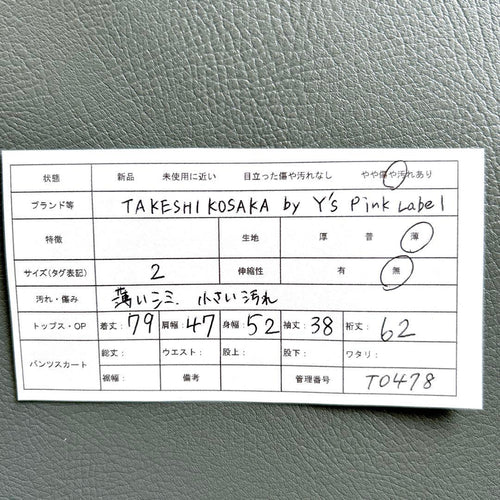 状態 新品 未使用に近い 目立った傷や汚れなし やや傷や汚れあり
ブランド等 TAKESHI KOSAKA by Y's Pink Label
特徴 生地 厚 普 薄
サイズ(タグ表記) 2 伸縮性 有 無
汚れ・傷み 薄いシミ. 小さい汚れ
トップス・OP 着丈:79 肩幅:47 身幅:52 袖丈:38 裄丈:62
パンツスカート 総丈: ウエスト: 股上: 股下: ワタリ:
裾幅: 備考 管理番号 T0478